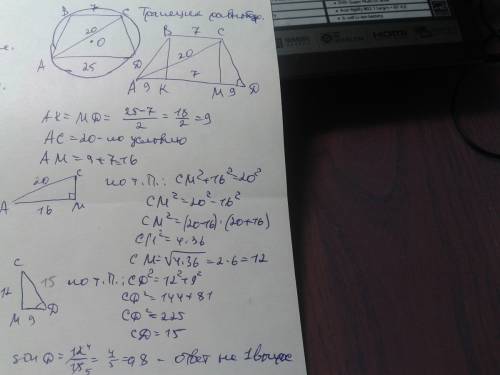 Трапеция равнобо.
B 7 C
20
O
A 25 D
B 7 C
20
7
A 9 K M 9 D
AK = MD = (25-7)/2 = 18/2 = 9
AC = 20 - по условию
AM = 9+7=16
20 C
A 16 M
по т.П.: CM²+16²=20²
CM²=20²-16²
CM²=(20-16)·(20+16)
CM²=4·36
CM=√4·36=2·6=12
C
12 15
M 9 D
по т.П.: CD²=12²+9²
CD²=144+81
CD²=225
CD=15
sin D = 12⁴/15₅ = 4/5 = 0,8 - ответ на 1 вопрос
HDMI